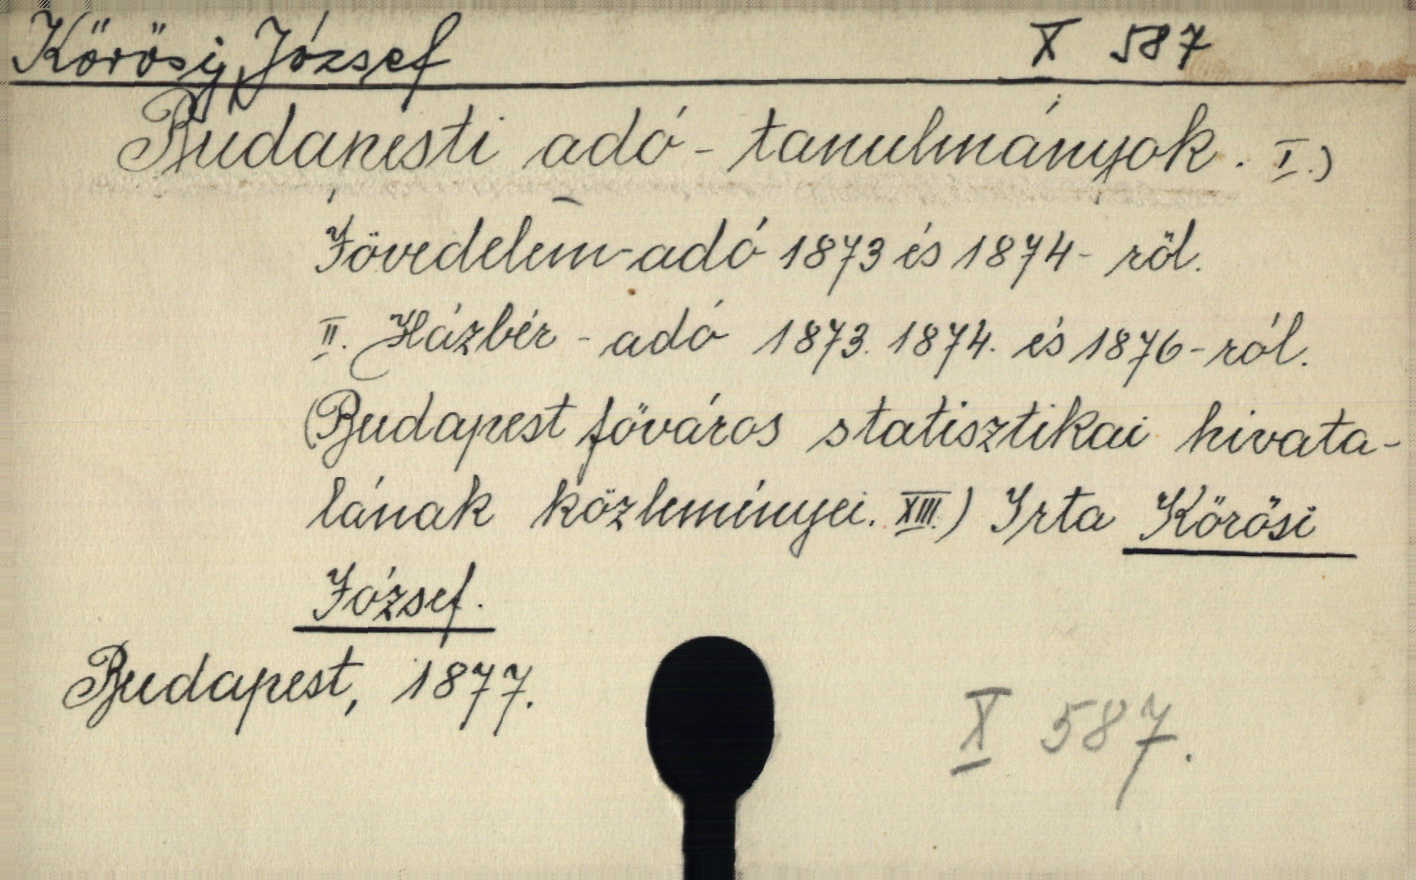 Kőrösy József X 587
Budapesti adó-tanulmányok. I.)
Jövedelem-adó 1873 és 1874-ről.
II. Házbér-adó 1873. 1874. és 1876-ról.
(Budapest főváros statisztikai hivata-
lának közleményei. XIII.) Irta Kőrösi
József.
Budapest, 1877.
X 587.